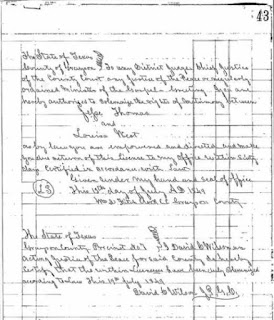 43
The State of Texas
County of Grayson To any District Judge Chief Justice
of the County Court any Justice of the Peace or regularly
ordained Minister of the Gospel Greeting You are
hereby authorized to solemnize the rights of Matrimony between
Thomas
and
Louisa West
as by law you are empowered and directed and make
you due return of this License to my office within sixty
days Certified in accordance with Law
Given under my hand and seal of office
This day of July AD 1849
Grayson County
13
The State of Texas
Grayson County Precinct No 1 I David C Wilson an
Acting Justice of the Peace for said County do hereby
Certify that the within License have been duly
according to law This July 1849
David C Wilson J.P.G.C.